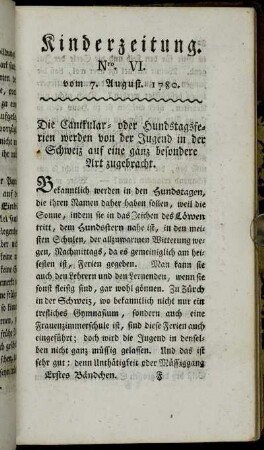 Kinderzeitung.
Nro. VI.
vom 7. August. 1780.
Die Canikular- oder Hundstagsfe-
rien werden von der Jugend in der
Schweiz auf eine ganz besondere
Art zugebracht.
Bekanntlich werden in den Hundstagen,
die ihren Namen daher haben sollen, weil die
Sonne, indem sie in das Zeichen des Löwen
tritt, dem Hundsstern nahe ist, in den mei-
sten Schulen, der allzuwarmen Witterung we-
gen, Nachmittags, da es gemeiniglich am hei-
sesten ist, Ferien gegeben. Man kann sie
auch den Lehrern und den Lernenden, wenn sie
sonst fleisig sind, gar wohl gönnen. Zu Zürch
in der Schweiz, wo bekanntlich nicht nur ein
trefliches Gymnasium, sondern auch eine
Frauenzimmerschule ist, sind diese Ferien auch
eingeführt; doch wird die Jugend in densel-
ben nicht ganz müssig gelassen. Und das ist
sehr gut: denn Unthätigkeit oder Müssiggang
Erstes Bändchen. F